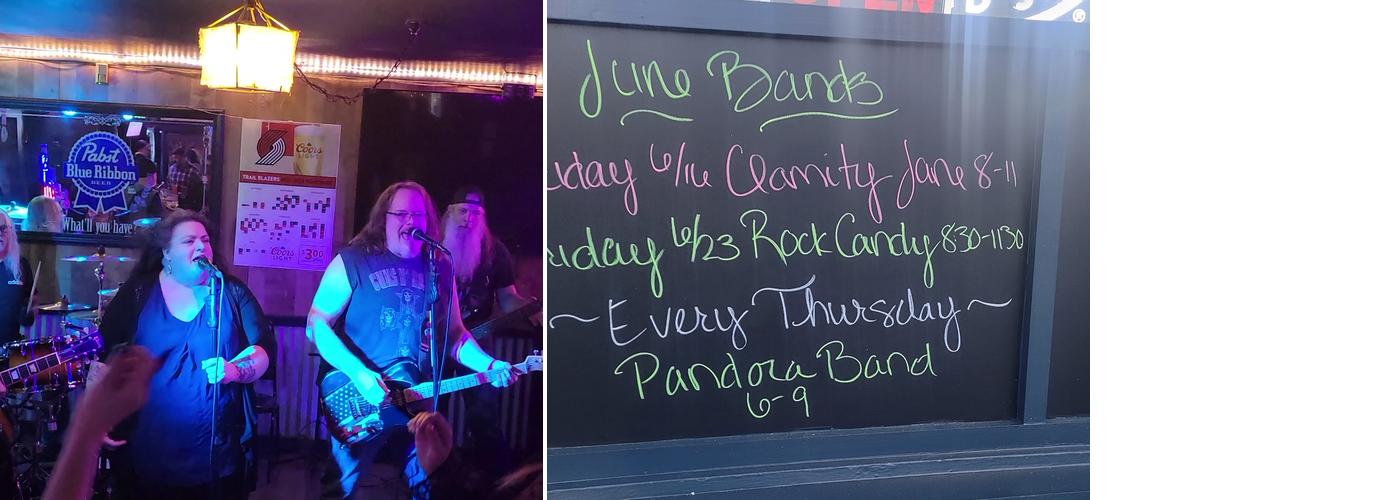 Pabst
Blue Ribbon
BEER
What'll you have?
Coors
LIGHT
TRAIL BLAZERS
Coors
LIGHT
$3.00
GUNS N'
June Bands
6/16 Clamity Jane 8-11
6/23 Rock Candy 8:30-11:30
~ Every Thursday ~
Pandora Band
6-9